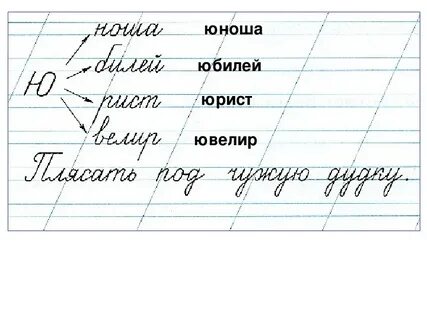 ноша юноша
билей юбилей
Ю
рист юрист
велир ювелир
Плясать под чужую дудку.